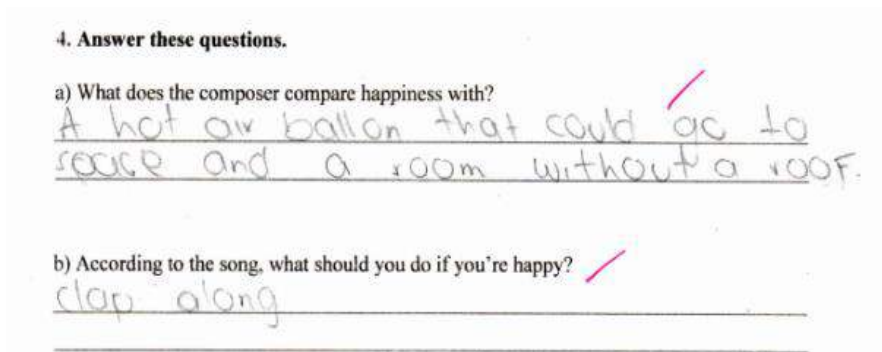 4. Answer these questions.
a) What does the composer compare happiness with?
A hot air ballon that could go to
space and a room without a roof.
b) According to the song, what should you do if you're happy?
clap along